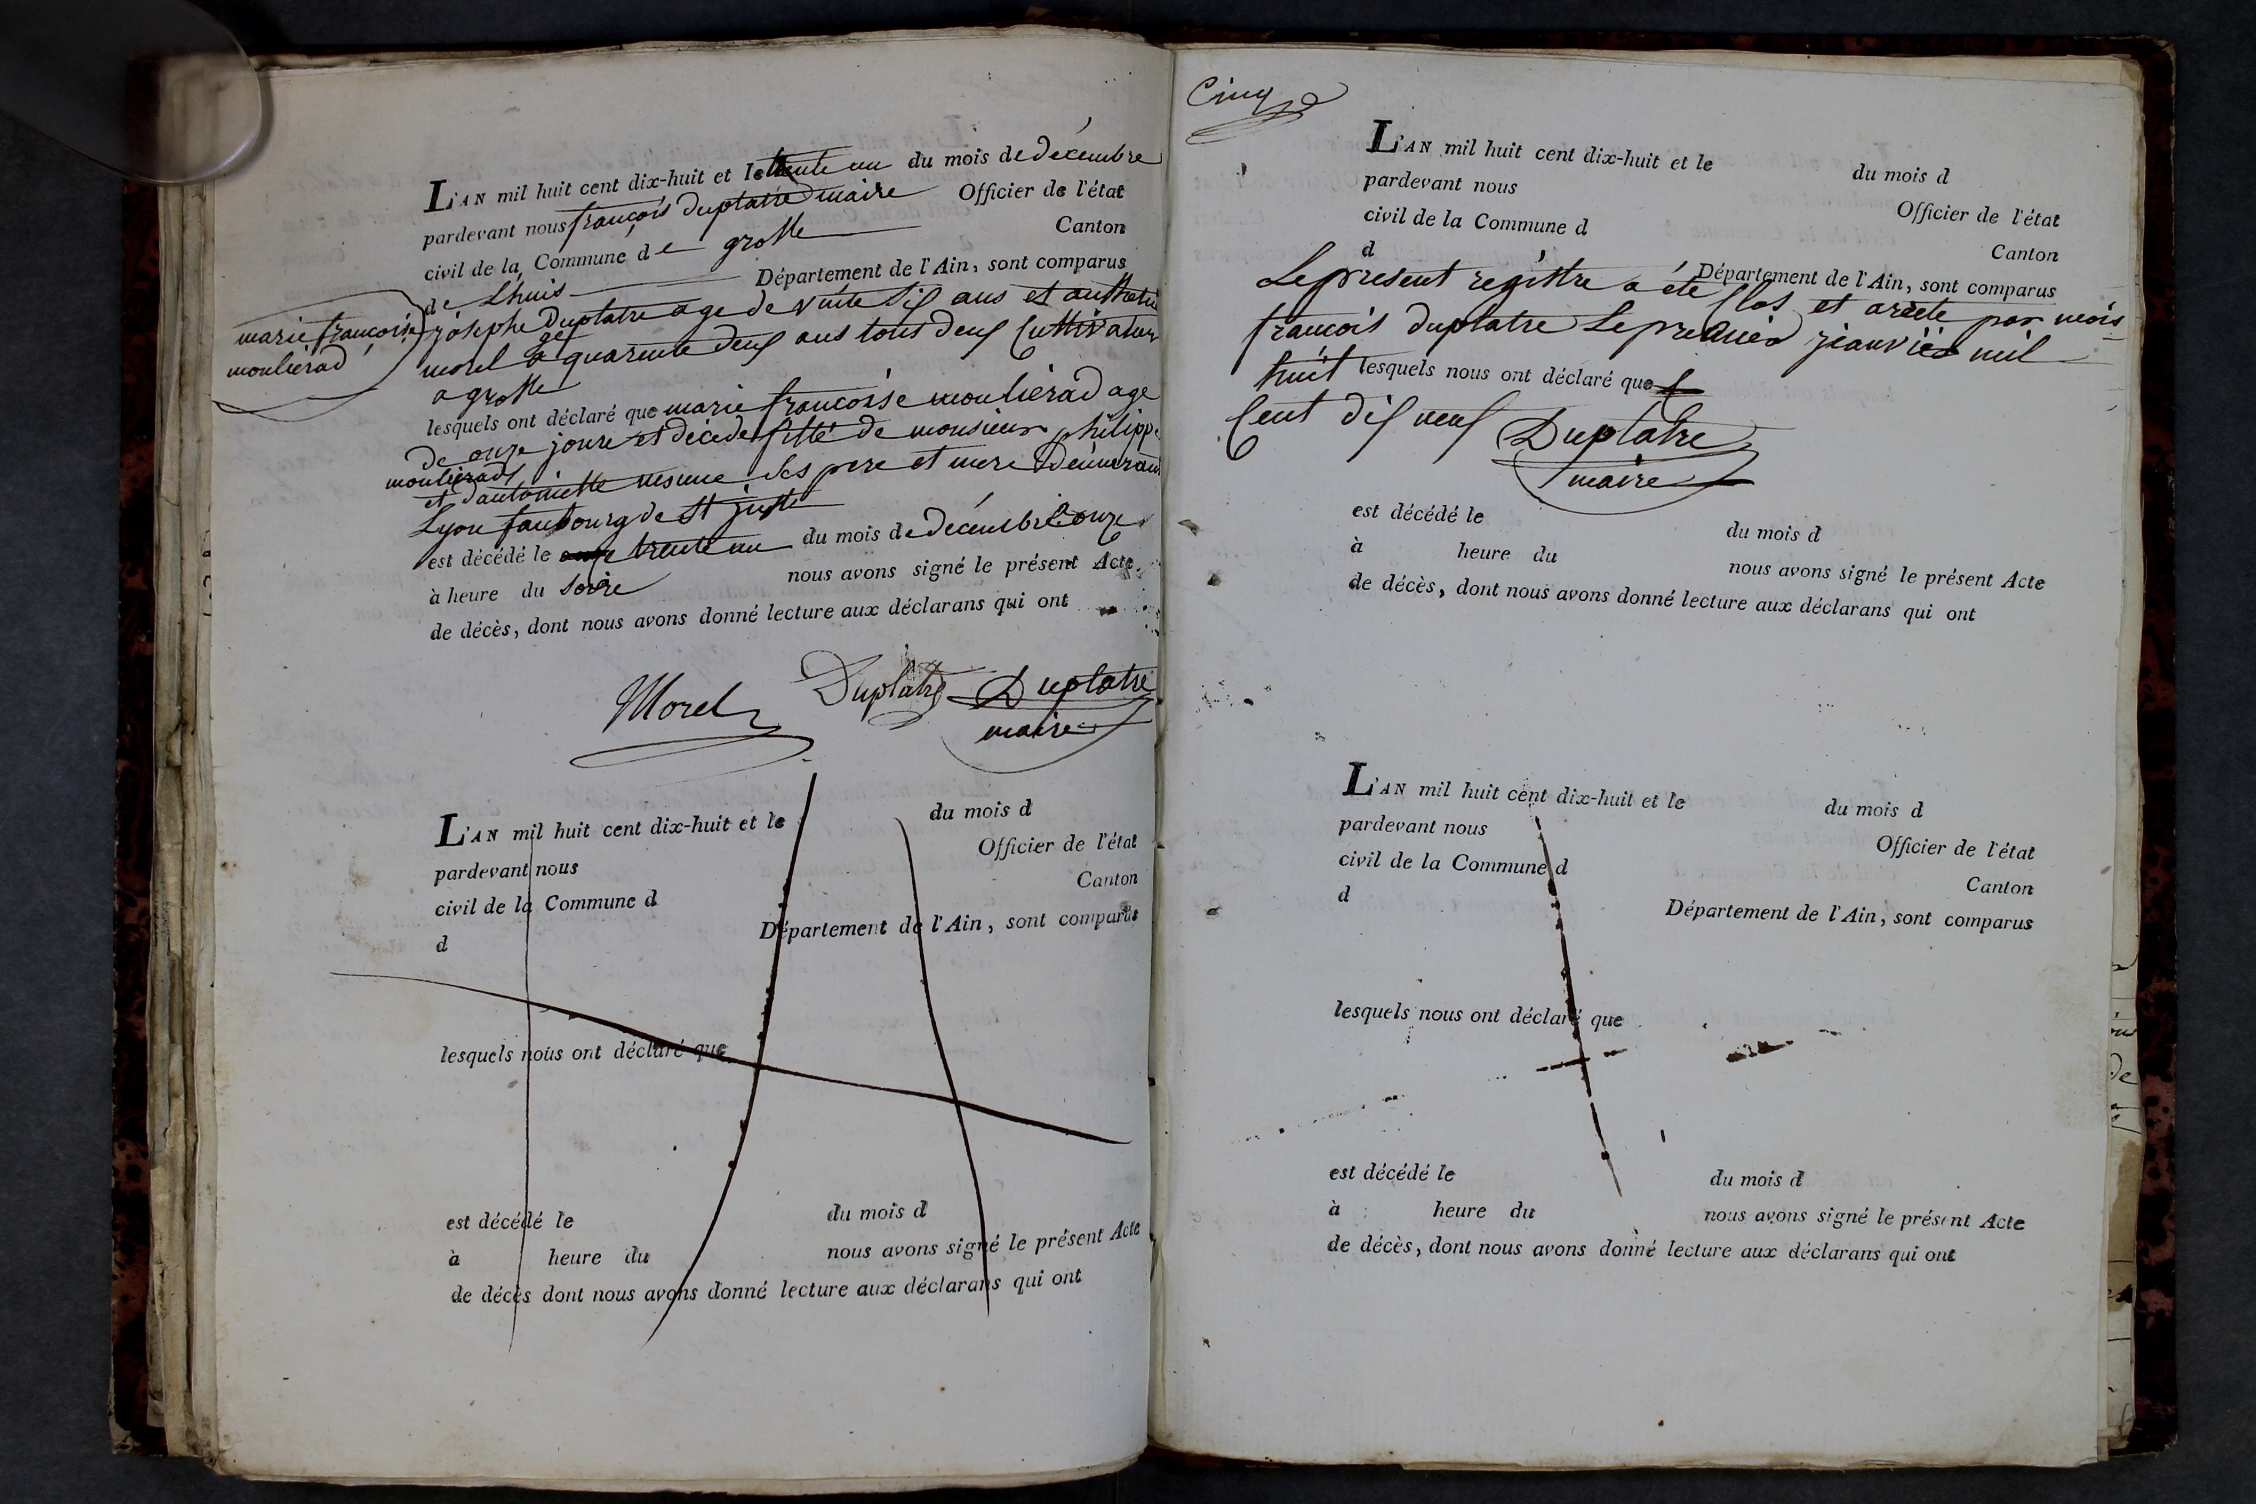 L'AN mil huit cent dix-huit et le trente un du mois de décembre
pardevant nous françois duplatre maire Officier de l'état
civil de la Commune de grolle Canton
de Lhuis Département de l'Ain, sont comparus
marie francoise
moulierad
josephe Duplatre age de vinte sis ans et
morel agé quarente deux ans tous deux Cultivateur
a grolle
lesquels ont déclaré que marie francoise moulierad age
de onze joure et décédé fille de monsieur philippe
moulierad
et dantoinette mesme ses pere et mere
Lyon faubourg de St juste
est décédé le trente un du mois de décembre a onze
à heure du soire nous avons signé le présent Acte
de décès, dont nous avons donné lecture aux déclarans qui ont
Morel Duplatre Duplatre
maire
L'AN mil huit cent dix-huit et le du mois d
pardevant nous Officier de l'état
civil de la Commune d Canton
d Département de l'Ain, sont comparus
lesquels nous ont déclaré que
est décédé le du mois d
à heure du nous avons signé le présent Acte
de décès dont nous avons donné lecture aux déclarans qui ont
Cinq
L'AN mil huit cent dix-huit et le du mois d
pardevant nous Officier de l'état
civil de la Commune d Canton
d Département de l'Ain, sont comparus
Le present registre a été Clos et arete par mois
francois duplatre Le premier jianvier mil
huit lesquels nous ont déclaré que
Cent dis neuf Duplatre
maire
est décédé le du mois d
à heure du nous avons signé le présent Acte
de décès, dont nous avons donné lecture aux déclarans qui ont
L'AN mil huit cent dix-huit et le du mois d
pardevant nous Officier de l'état
civil de la Commune d Canton
d Département de l'Ain, sont comparus
lesquels nous ont déclaré que
est décédé le du mois d
à heure du nous avons signé le présent Acte
de décès, dont nous avons donné lecture aux déclarans qui ont